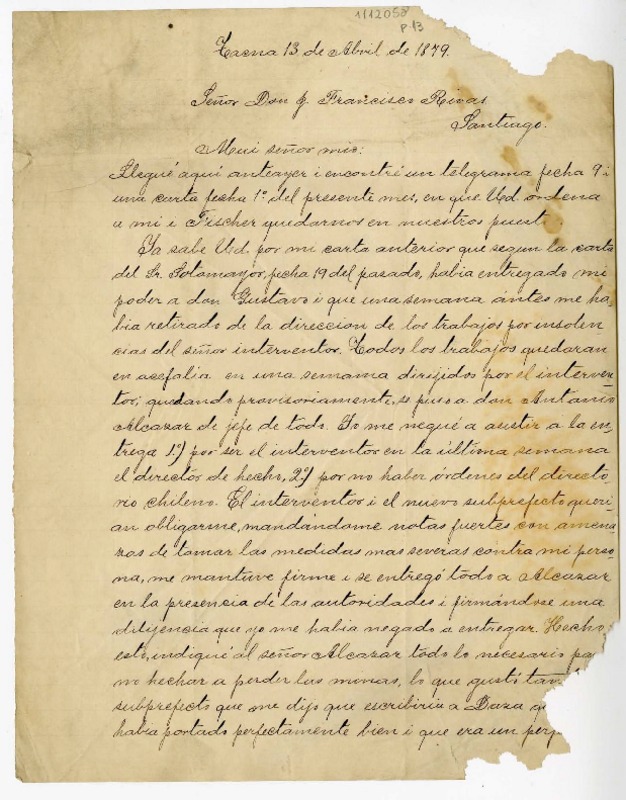 1112058
p.13
Tacna 13 de Abril de 1879.
Señor Don J. Francisco Rivas
Santiago.
Mui señor mio:
Llegué aquí anteayer i encontré un telegrama fecha 9 i
una carta fecha 1º del presente mes, en que Ud. ordena
a mi i Fischer quedarnos en nuestros puest
Ya sabe Ud. por mi carta anterior que segun la carta
del Sr. Sotomayor, fecha 19 del pasado, habia entregado mi
poder a don Gustavo i que una semana ántes me ha-
bia retirado de la direccion de los trabajos por insolen
cias del señor interventor. Todos los trabajos quedaran
en acefalia en una semana dirijidos por el interven-
tor; quedando provisoriamente, se puso a don Antonio
Alcazar de jefe de todo. Yo me negué a asistir a la en-
trega 1º) por ser el interventor en la última semana
el director de hecho, 2º) por no haber órdenes del directo-
rio chileno. El interventor i el nuevo subprefecto queri-
an obligarme, mandándome notas fuertes con amena
zas de tomar las medidas mas severas contra mi perso-
na, me mantuve firme i se entregó todo a Alcazar
en la presencia de las autoridades i firmándose una
dilijencia que yo me habia negado a entregar. Hecho
esto, indiqué al señor Alcazar todo lo necesario pa
no hechar a perder las minas, lo que gustó tam
subprefecto que me dijo que escribiria a Daza q
habia portado perfectamente bien i que era un perj